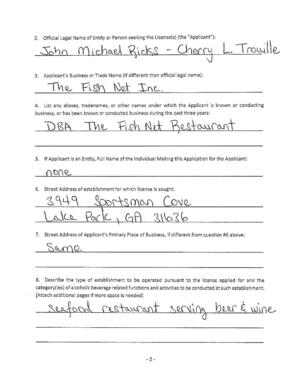 2. Official Legal Name of Entity or Person seeking the License(s) (the "Applicant"):
John Michael Ricks - Cherry L. Trouille
3. Applicant's Business or Trade Name (if different than official legal name):
The Fish Net Inc.
4. List any aliases, tradenames, or other names under which the Applicant is known or conducting
business, or has been known or conducted business during the past three years:
DBA The Fish Net Restaurant
5. If Applicant is an Entity, Full Name of the Individual Making this Application for the Applicant:
none
6. Street Address of establishment for which license is sought:
3949 Sportsman Cove
Lake Park, GA 31636
7. Street Address of Applicant's Primary Place of Business, if different from question #6 above:
Same
8. Describe the type of establishment to be operated pursuant to the license applied for and the
category(ies) of alcoholic beverage related functions and activities to be conducted at such establishment.
(Attach additional pages if more space is needed)
seafood restaurant serving beer & wine
- 2 -